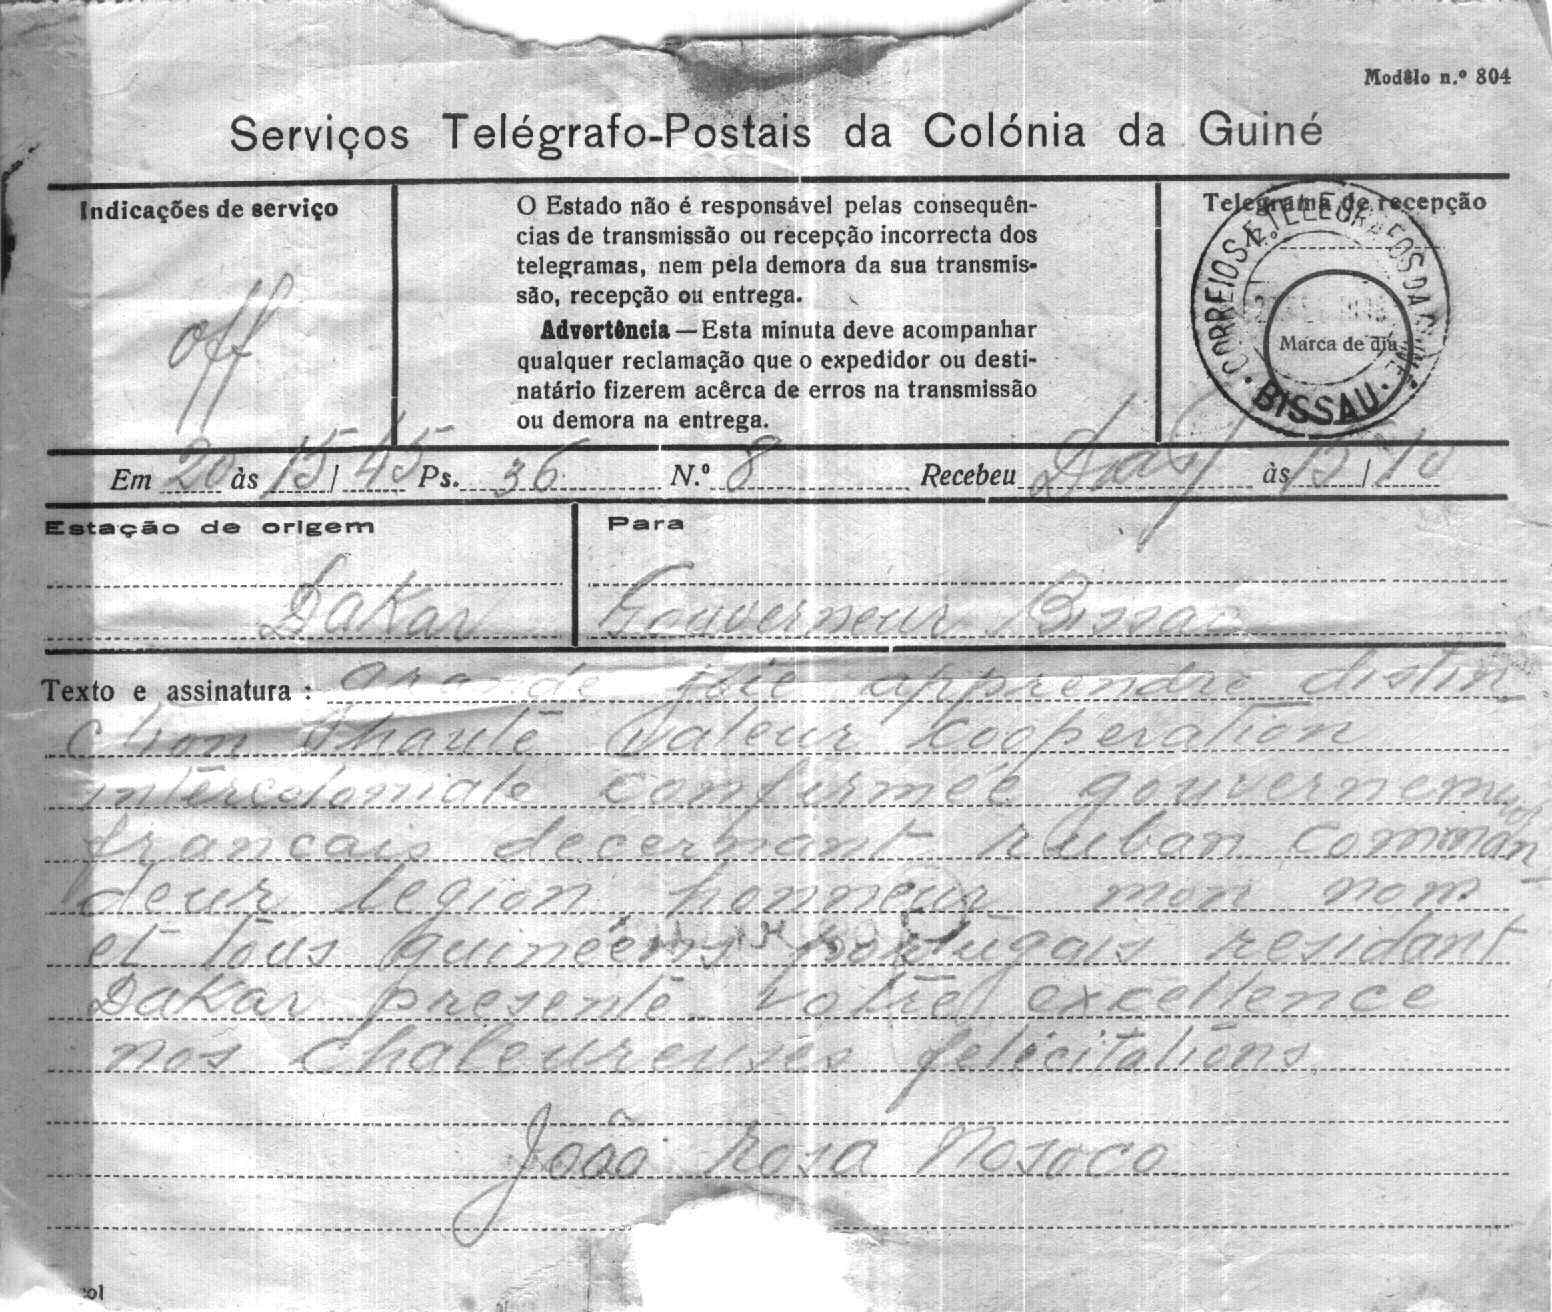 Modêlo n.º 804
Serviços Telégrafo-Postais da Colónia da Guiné
Indicações de serviço
off
O Estado não é responsável pelas consequên-
cias de transmissão ou recepção incorrecta dos
telegramas, nem pela demora da sua transmis-
são, recepção ou entrega.
Advertência — Esta minuta deve acompanhar
qualquer reclamação que o expedidor ou desti-
natário fizerem acêrca de erros na transmissão
ou demora na entrega.
Telegrama de recepção
CORREIOS E TELEGRAFOS DA GUINÉ
Marca de dia
BISSAU
Em 20 às 15/45 Ps. 36 N.º 8 Recebeu às /10
Estação de origem
Dakar
Para
Gouverneur Bissau
Texto e assinatura: Grande joie apprendre distin
ction d'haute valeur cooperation
intercoloniale confirmée gouvernement
francais decernant ruban comman-
deur legion honneur mon nom
et tous guineens portugais residant
Dakar presente votre excellence
nos chaleureuses felicitations
João Rosa Nosoco
col